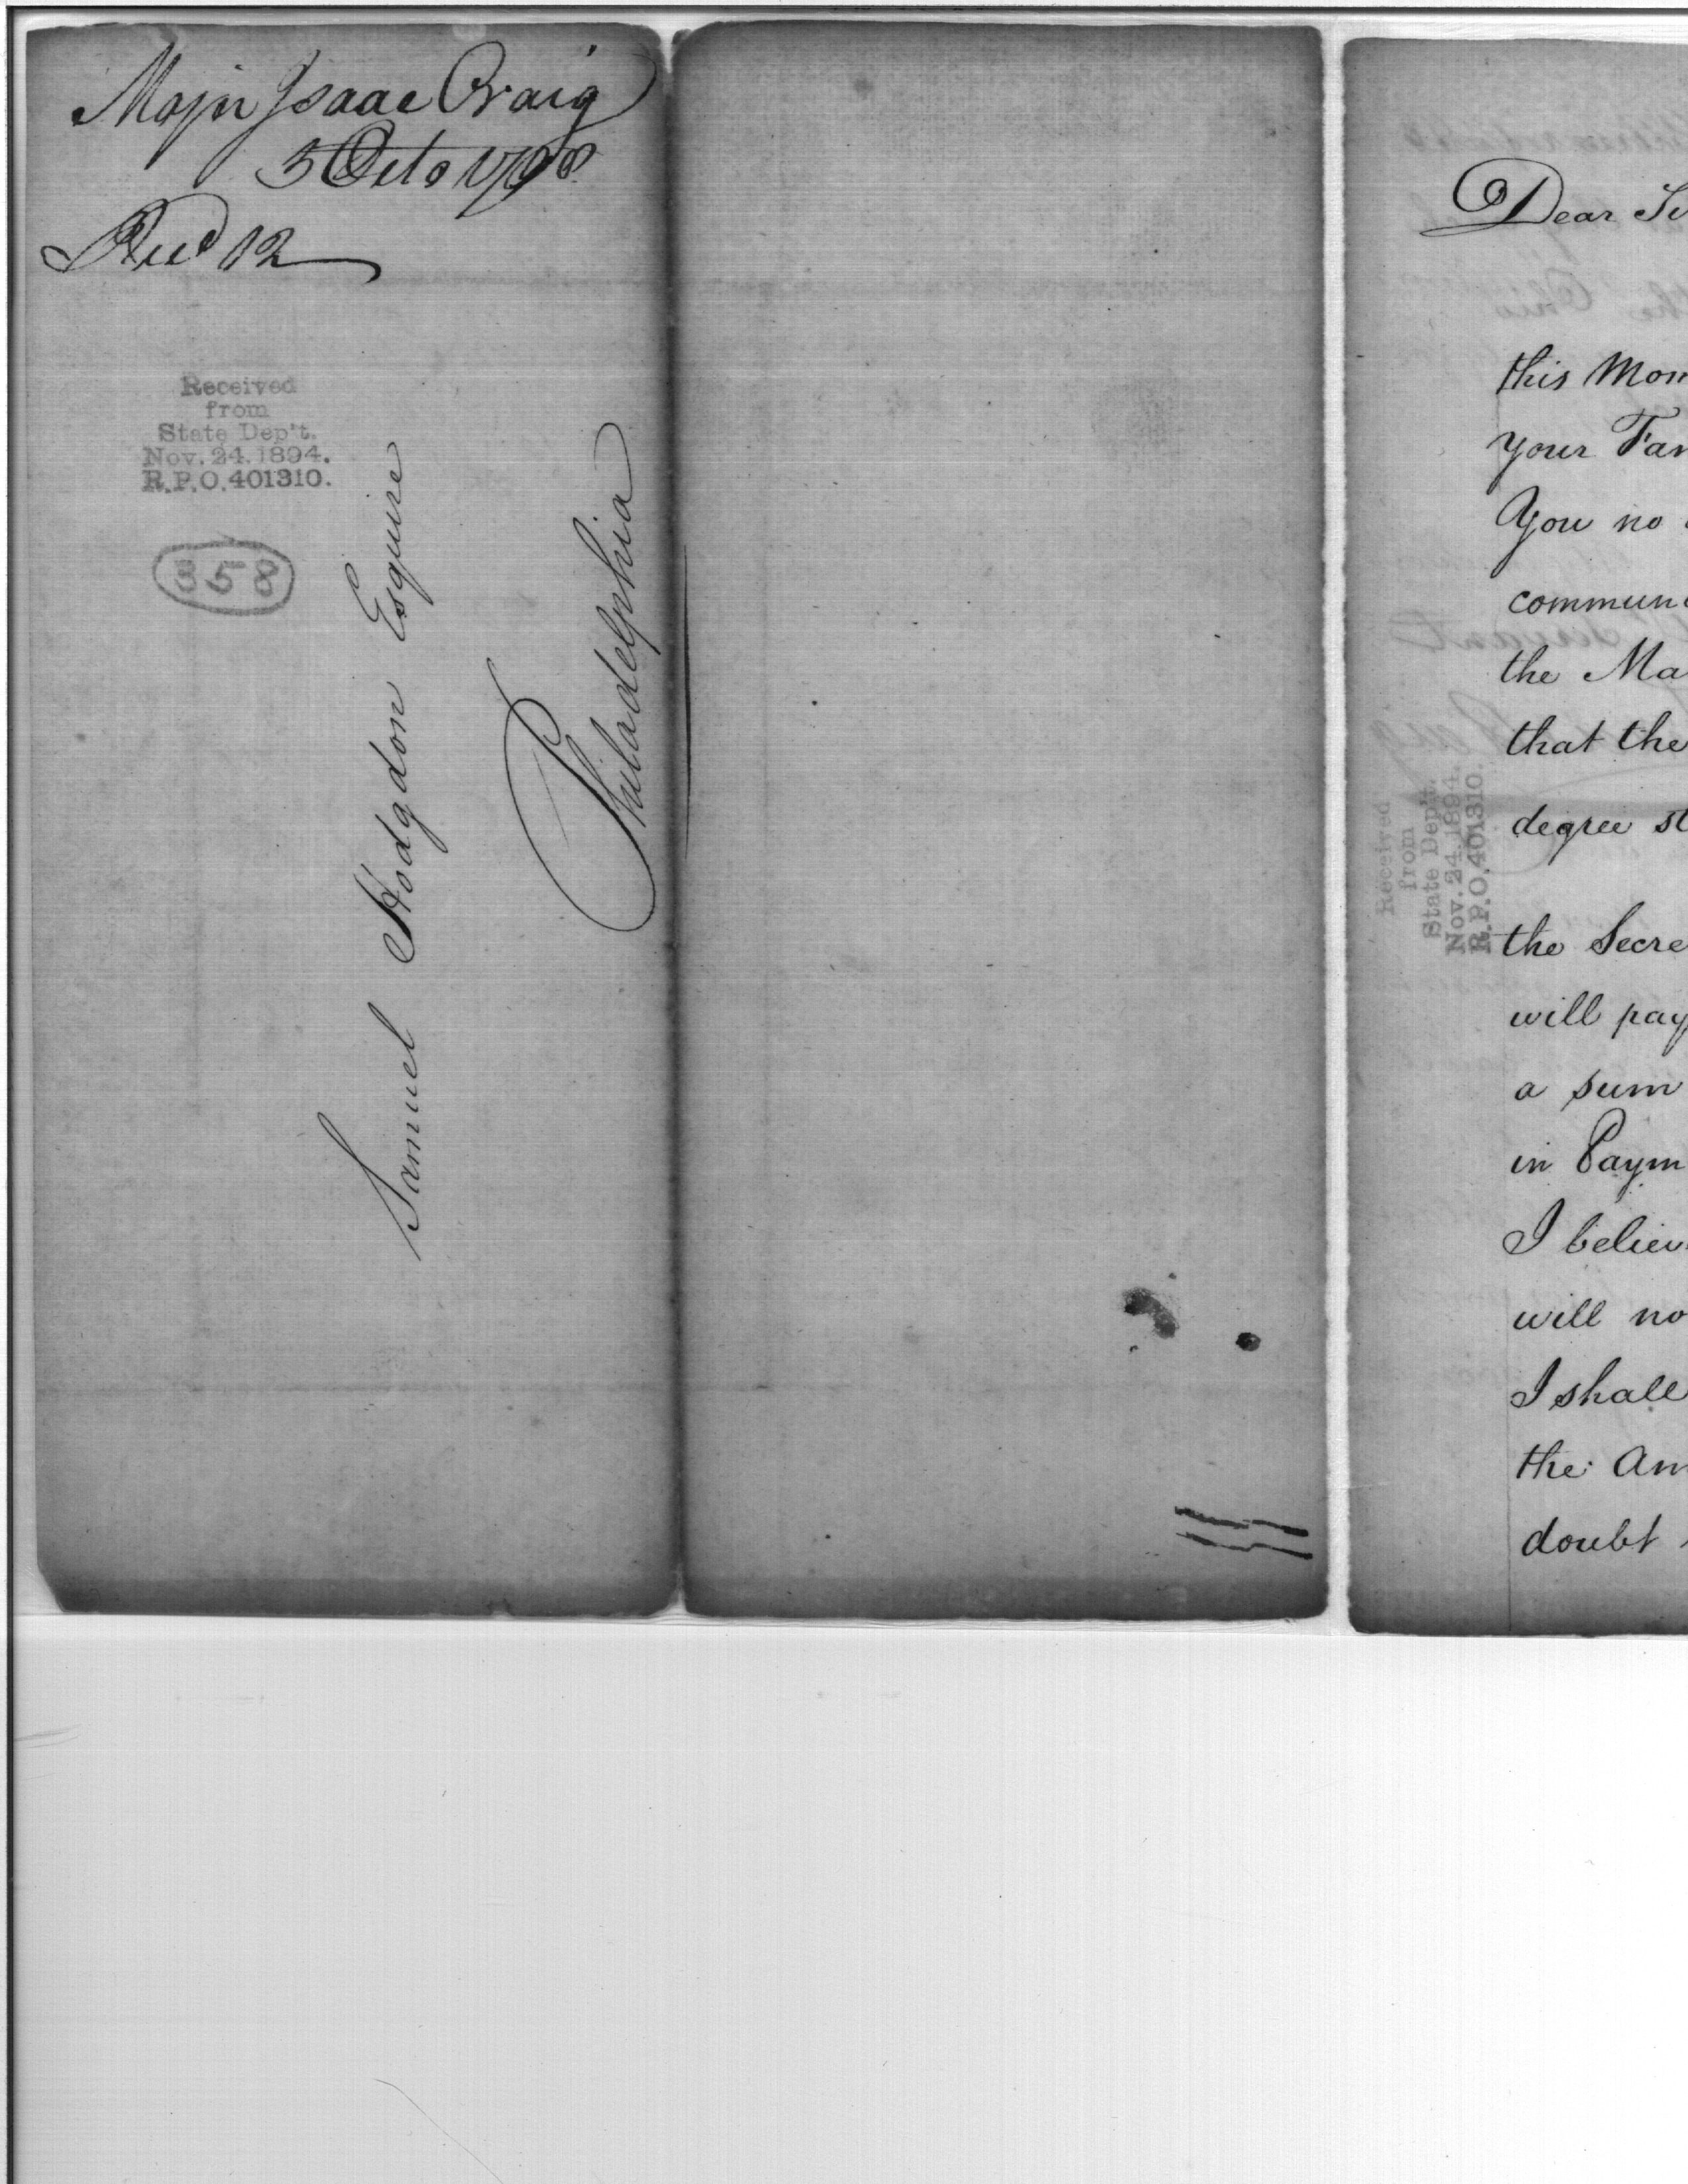 Majr Isaac Craig
5 Octo 1798
Recd 12
Received
from
State Dep't.
Nov. 24. 1894.
R.P.O. 401310.
358
Samuel Hodgdon Esquire
Philadelphia
Dear
this
your
You no
the
that the
degree
Received
from
State Dep't.
Nov. 24. 1894.
R.P.O. 401310.
the
will pay
a sum
in
I
will
I shall
the
doubt